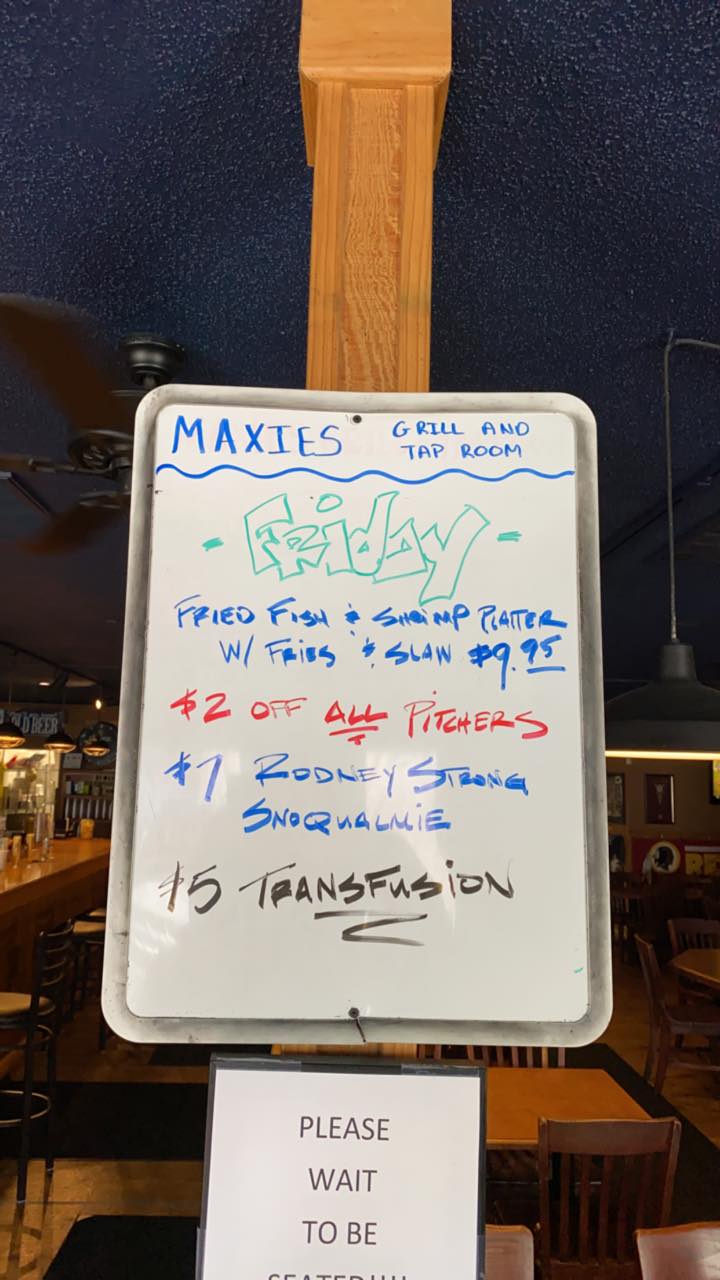 MAXIES GRILL AND
TAP ROOM
- FRiday -
FRIED FISH & SHRIMP PLATTER
W/ FRIES & SLAW $9.95
$2 OFF ALL PITCHERS
$7 RODNEY STRONG
SNOQUALMIE
$5 TRANSFUSION
OLD BEER
RE
PLEASE
WAIT
TO BE
SEATED!!!!